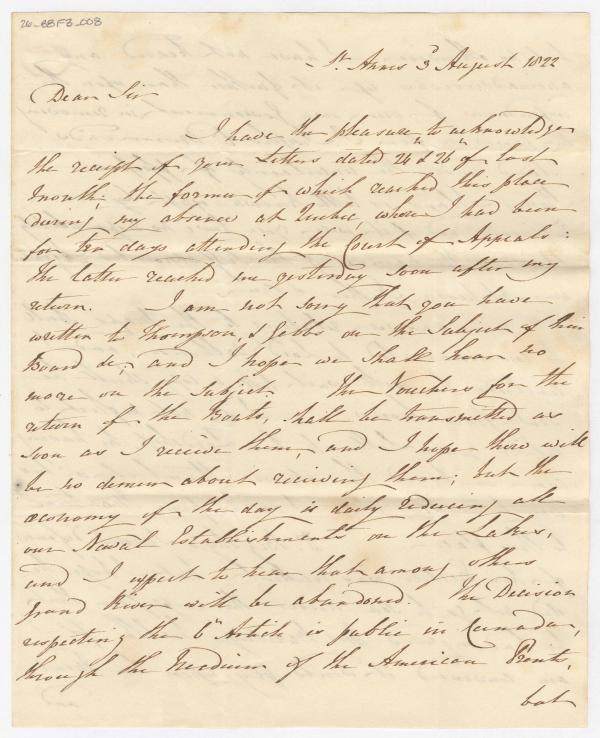 26-BBF3-008
St. Anns 3d August 1822
Dear Sir
I have the pleasure to acknowledge
the receipt of your Letters dated 24th & 26th of last
month; the former of which reached this place
during my absence at Quebec, where I had been
for ten days attending the Court of Appeals:
the latter reached me yesterday soon after my
return. I am not sorry that you have
written to Thompson, & Gibbs on the Subject of their
Board &c, and I hope we shall hear no
more on the subject. The Vouchers for the
return of the Boats, shall be transmitted as
soon as I receive them, and I hope there will
be no demur about receiving them; but the
œconomy of the day is daily reducing all
our Naval Establishments on the Lakes,
and I expect to hear that among others
Grand River will be abandoned. The Decision
respecting the 6th Article is public in Canada,
through the Medium of the American Prints,
but